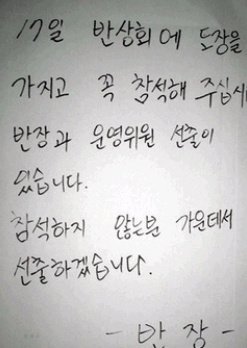 17일 반상회에 도장을
가지고 꼭 참석해 주십시
반장과 운영위원 선출이
있습니다.
참석하지 않는분 가운데서
선출하겠습니다.
- 반장 -